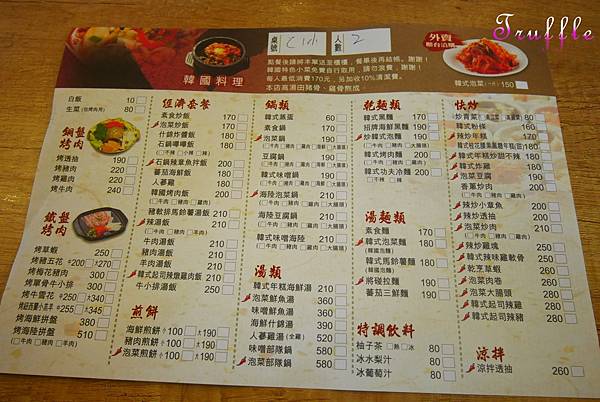 Truffle
韓國料理
桌號
人數 2
點餐後請將本單送至櫃檯，餐畢後再結帳。謝謝！
韓國特色小菜免費自行取用，請勿浪費，謝謝！
每人最低消費170元，另加收10%清潔費。
本店高湯由豬骨、雞骨熬成
外賣
韓式泡菜 150
白飯 10
生菜 80
銅盤烤肉
烤透抽 190
烤豬肉 220
烤雞肉 220
烤牛肉 240
鐵盤烤肉
烤草蝦 250
烤豬五花 小200 大310
烤梅花豬肉 300
烤單骨牛小排 350
烤牛雪花 小250 大345
烤海鮮拼盤 380
烤海陸拼盤 510
(□牛肉 □豬肉 □羊肉)
經濟套餐
素食炒飯 170
泡菜炒飯 170
什錦炒飯 180
石鍋嗶嗶飯 190
石鍋辣章魚拌飯 190
蕃茄海鮮飯 180
人蔘雞 180
韓國烤肉飯 200
(□牛肉 □豬肉 □雞肉)
豬軟排馬鈴薯湯飯 190
辣湯飯 210
牛肉湯飯 210
豬肉湯飯 210
羊肉湯飯 210
韓式起司辣燉雞肉飯 210
牛小排湯飯 250
煎餅
海鮮煎餅 □小100 □大190
豬肉煎餅 □小100 □大190
泡菜煎餅 □小100 □大190
鍋類
韓式蒸蛋 60
素食鍋 190
泡菜鍋 190
豆腐鍋 190
韓式味噌鍋 190
海陸泡菜鍋 210
海陸豆腐鍋 210
韓式味噌海陸 210
湯類
韓式年糕海鮮湯 210
泡菜鮮魚湯 350
味噌鮮魚湯 350
海鮮什錦湯 390
人蔘雞湯(全雞) 580
味噌部隊鍋 580
泡菜部隊鍋 580
乾麵類
韓式黑麵 170
招牌海鮮黑麵 190
韓式炒泡麵 190
韓式烤肉麵 200
(□牛肉 □豬肉 □雞肉)
韓式功夫冷麵 200
湯麵類
素食麵 170
韓式泡菜麵 180
韓式馬鈴薯麵 180
將碰拉麵 180
蕃茄三鮮麵 180
特調飲料
柚子茶 □熱 □冰 80
冰水梨汁 80
冰葡萄汁 80
快炒
炒青菜
韓式粉條 160
辣炒年糕 160
韓式年糕炒甜不辣 180
韓式炸雞 180
泡菜豆腐 190
香蔥炒肉 200
辣炒小章魚 210
辣炒透抽 210
泡菜炒肉 210
辣炒雞塊 210
韓式辣味雞軟骨 210
乾烹草蝦 250
泡菜肉卷 250
泡菜大腸頭 250
韓式起司辣雞 250
韓式起司辣豬 250
涼拌
涼拌透抽 260